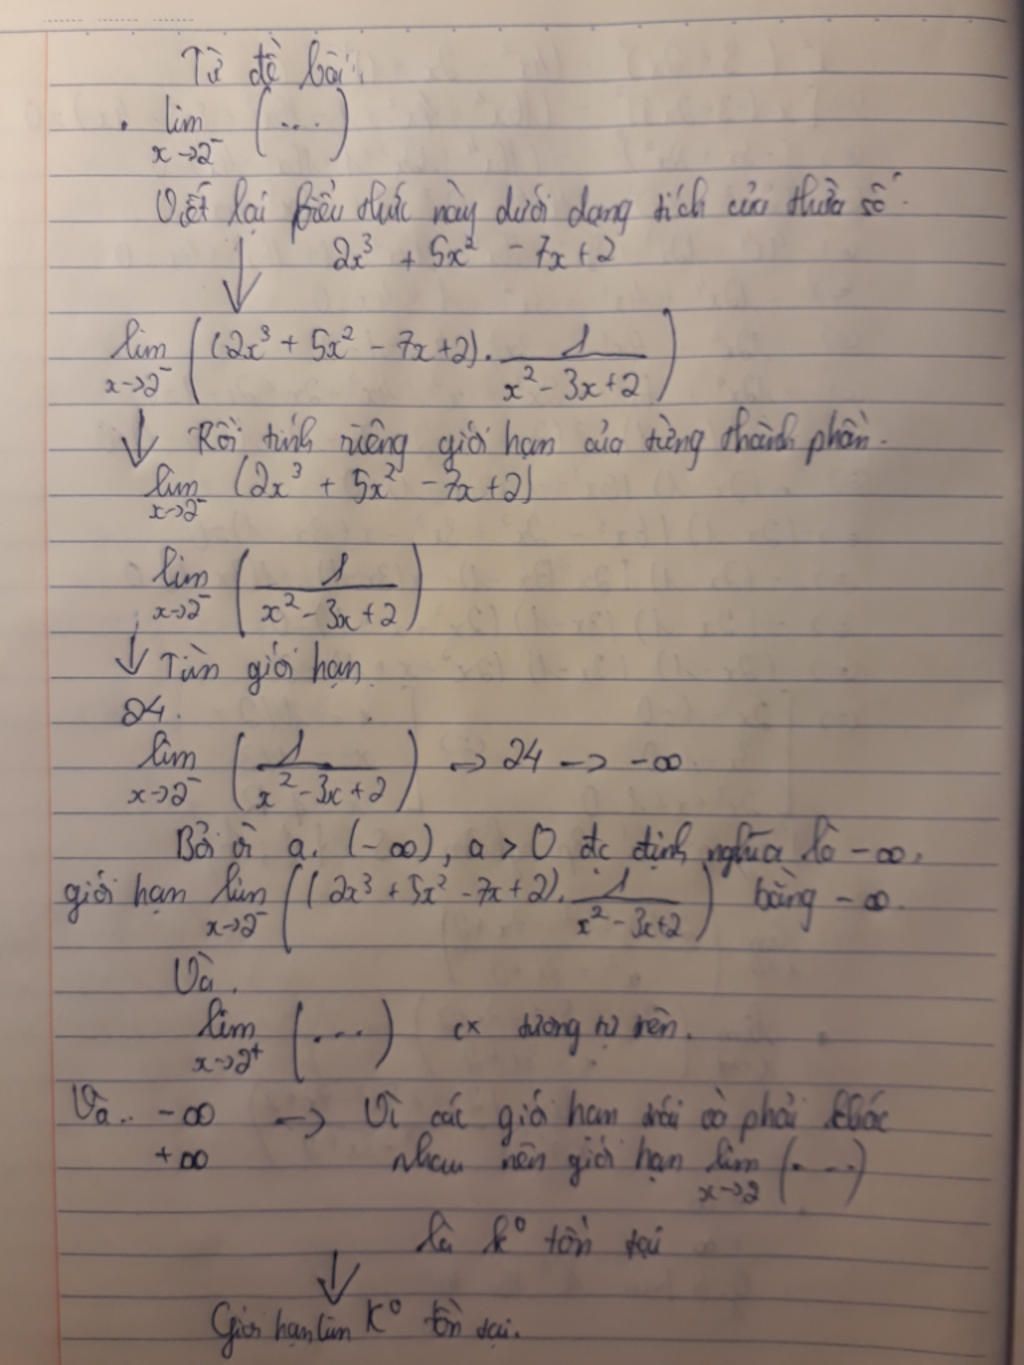 Từ đề bài:
• lim (...)
x→2⁻
Viết lại biểu thức này dưới dạng tích của thừa số.
2x³ + 5x² - 7x + 2
lim ((2x³ + 5x² - 7x + 2) . 1
x→2⁻ x² - 3x + 2)
↓ Rồi tính riêng giới hạn của từng thành phần.
lim (2x³ + 5x² - 7x + 2)
x→2⁻
lim (1
x→2⁻ x² - 3x + 2)
↓ Tìm giới hạn
24.
lim (1 → 24 → -∞
x→2⁻ x² - 3x + 2)
Bởi vì a. (-∞), a > 0 đc định nghĩa là -∞,
giới hạn lim ((2x³ + 5x² - 7x + 2) . 1 bằng -∞.
x→2⁻ x² - 3x + 2)
Và.
lim (...) cx tương tự trên.
x→2⁺
Và.. -∞ → Vì các giới hạn trái và phải khác
+∞ nhau nên giới hạn lim (...)
x→2
là k° tồn tại
↓
Giới hạn lim k° tồn tại.